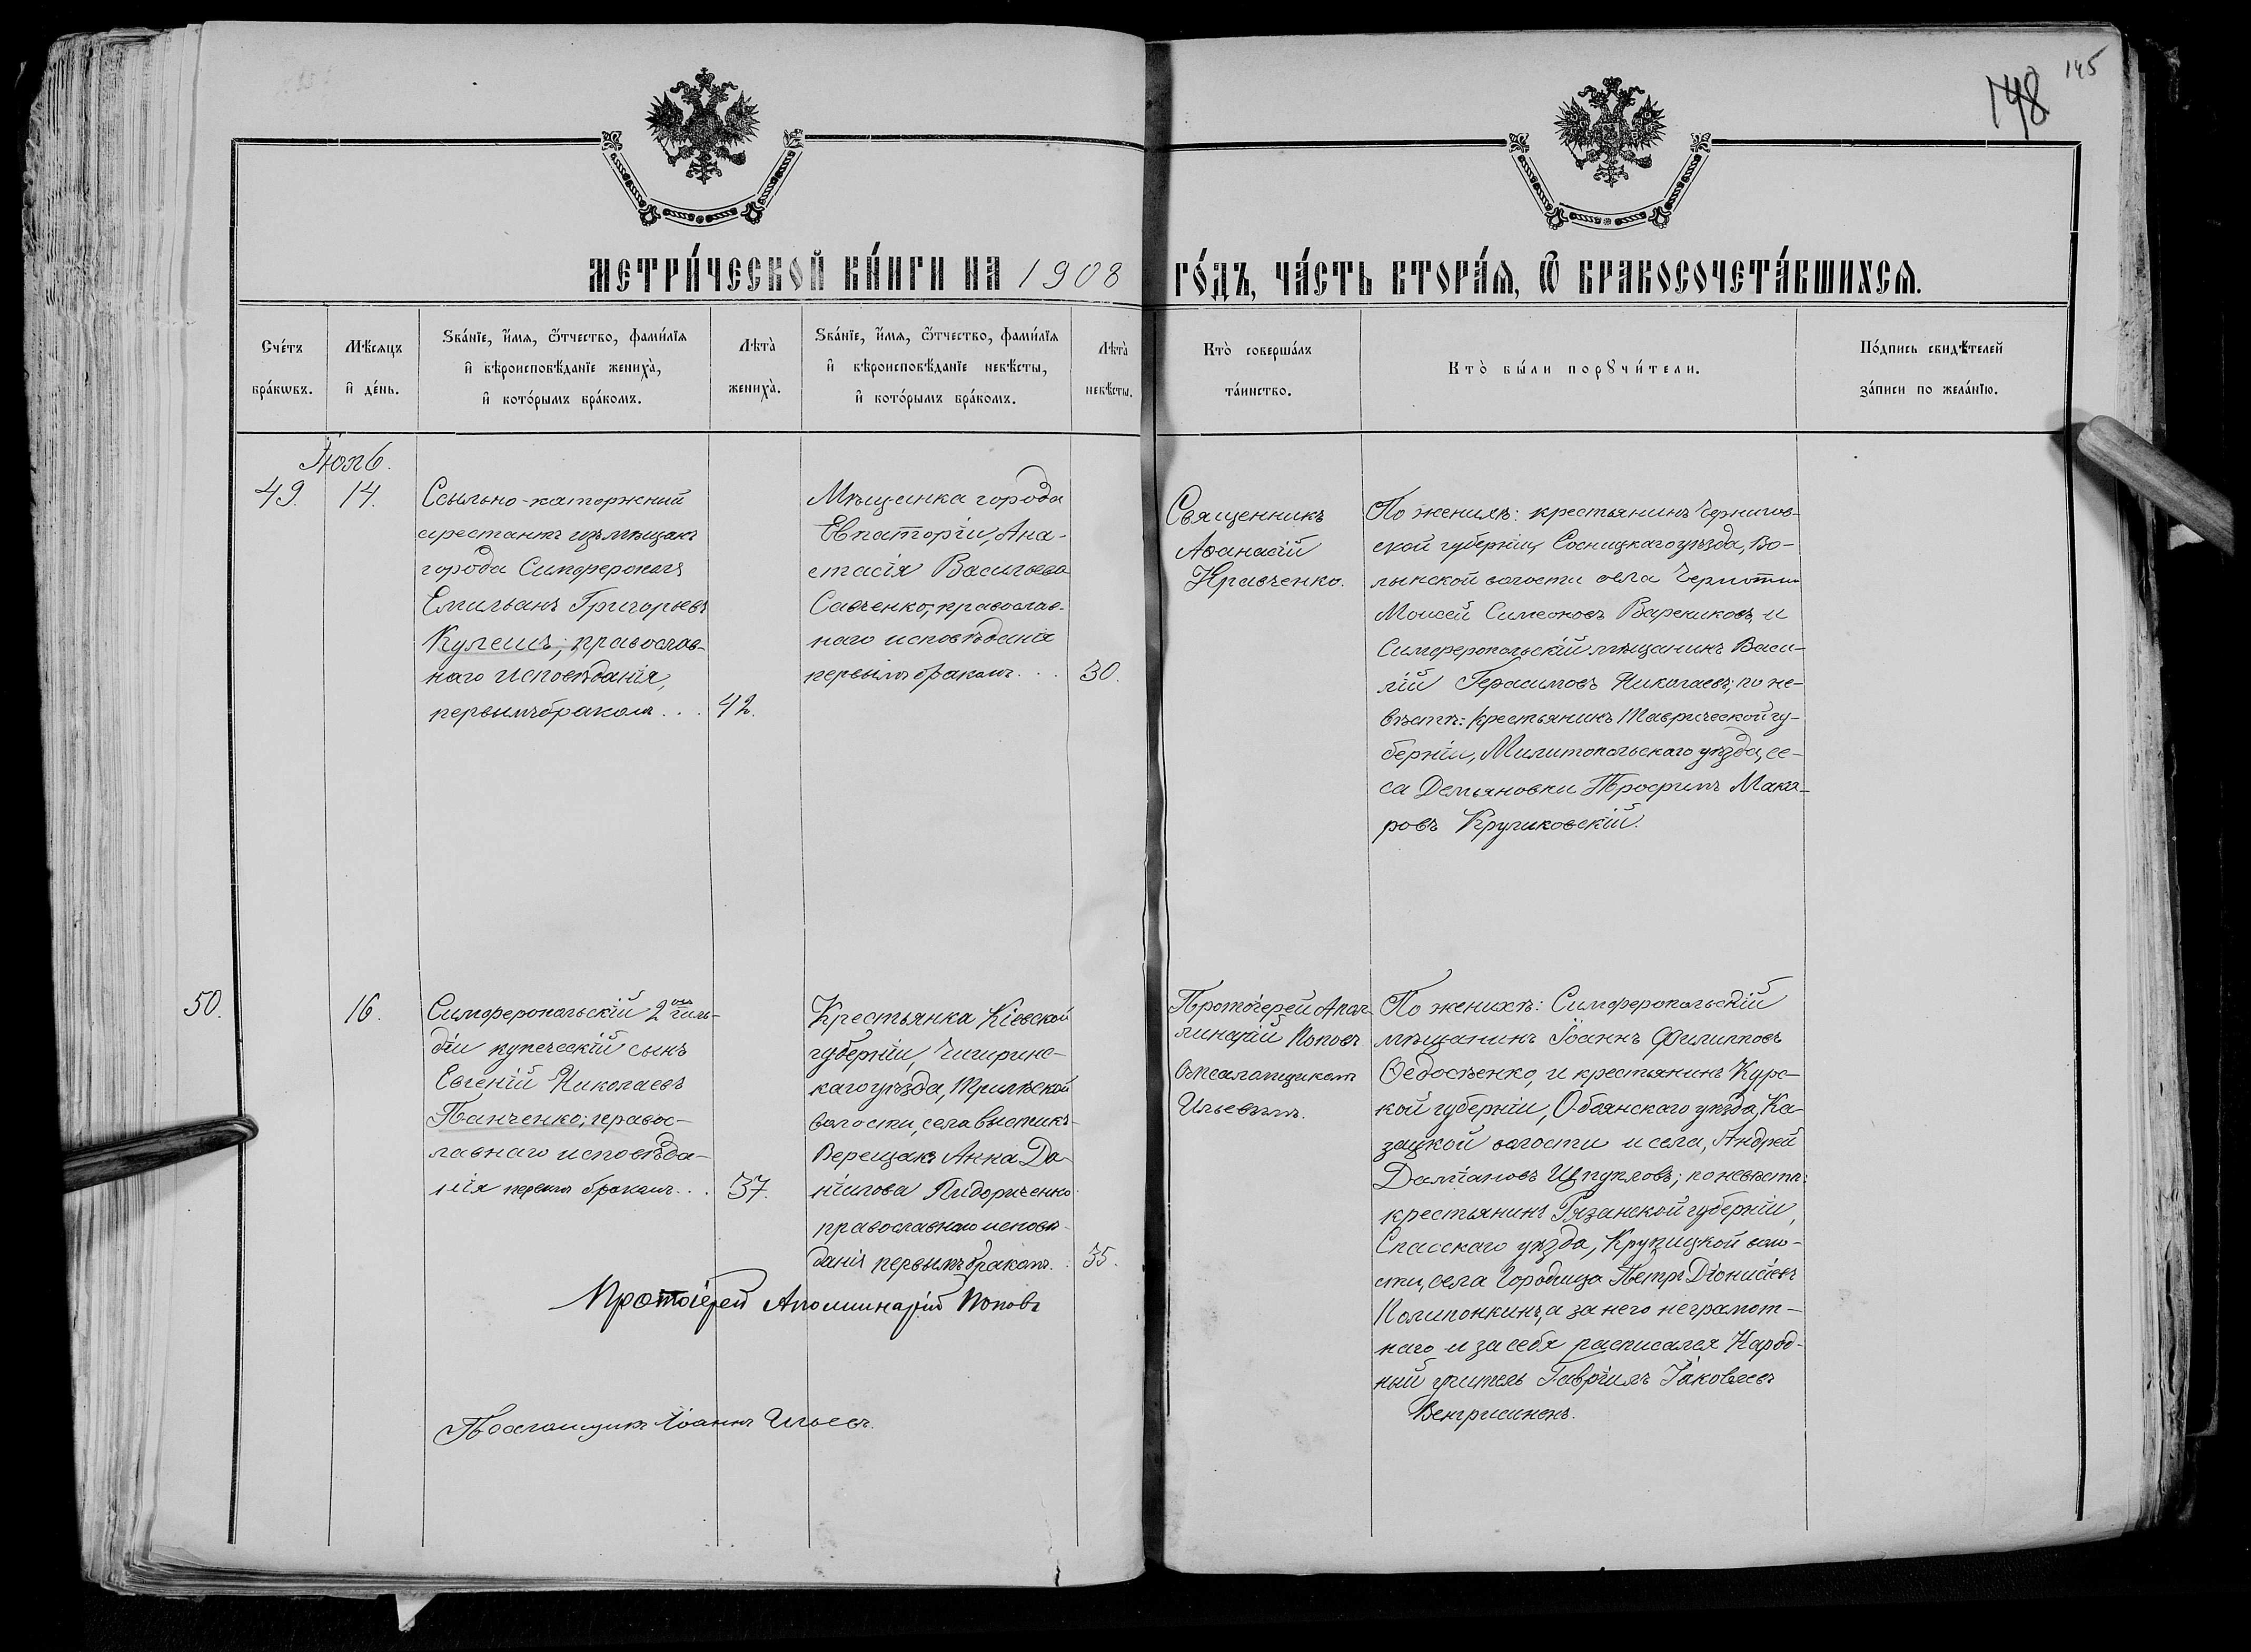 145
148
МЕТРИ́ЧЕСКОЙ КНИ́ГИ НА 1908 ГО́ДЪ, ЧА́СТЬ ВТОРА́Я, Ѿ БРАКОСОЧЕТА́ВШИХСЯ.
Сче́тъ бра́кѡвъ.
Мѣ́сяцъ и҆ де́нь.
Ѕва́нїе, и҆́мѧ, ѻ҆́тчество, фами́лїѧ
и҆ вѣроисповѣ́данїе жениха̀,
и҆ кото́рымъ бра́комъ.
Лѣта̀ жениха̀.
Ѕва́нїе, и҆́мѧ, ѻ҆́тчество, фами́лїѧ
и҆ вѣроисповѣ́данїе невѣ́сты,
и҆ кото́рымъ бра́комъ.
Лѣта̀ невѣ́сты.
Кто̀ соверша́лъ та́инство.
Кто̀ бы́ли порꙋчи́тели.
По́дпись свидѣ́телей за́писи по жела́нїю.
Іюль.
49.
14.
Ссыльно-каторжный
арестантъ изъ мѣщанъ
города Симферополя
Емильянъ Григорьевъ
Кулешъ; православ-
наго исповѣданія,
первымъ бракомъ . . .
42.
Мѣщанка города
Евпаторіи, Ана-
стасія Васильева
Савченко, православ-
наго исповѣданія
первымъ бракомъ . . .
30.
Священникъ
Аѳанасій
Кравченко.
По женихѣ: крестьянинъ Чернигов-
ской губерніи, Сосницкаго уѣзда, Во-
лынской волости села
Моисей Симеоновъ Варениковъ, и
Симферопольскій мѣщанинъ Васи-
лій Герасимовъ Николаевъ; по не-
вѣстѣ: крестьянинъ Таврической гу-
берніи, Милитопольскаго уѣзда, се-
ла Демьяновки Трофимъ Мака-
ровъ Кручиковскій.
50.
16.
Симферопольскій 2ой гиль-
діи купеческій сынъ
Евгеній Николаевъ
Панченко; правос-
лавнаго исповѣда-
нія первымъ бракомъ . . .
37.
Крестьянка Кіевской
губерніи, Чигиринс-
каго уѣзда,
волости, села
Верещакъ Анна Да-
ніилова Пидориченко
православнаго исповѣ-
данія первымъ бракомъ . .
35.
Протоіерей Апол-
линарій Поповъ
съ псаломщикомъ
Ильевымъ.
По женихѣ: Симферопольскій
мѣщанинъ Іоаннъ Филипповъ
Ѳедосѣенко, и крестьянинъ Курс-
кой губерніи, Обоянскаго уѣзда, Ка-
зацкой волости и села, Андрей
Даміановъ по невѣстѣ:
крестьянинъ Рязанской губерніи,
Спасскаго уѣзда, волo-
сти, села Городища Петръ Діонисіевъ
а за него неграмот-
наго и за себя расписался Народ-
ный учитель Гавріилъ Іаковлевъ
Протоіерей Аполлинарій Поповъ
Псаломщикъ Іоаннъ Ильевъ.